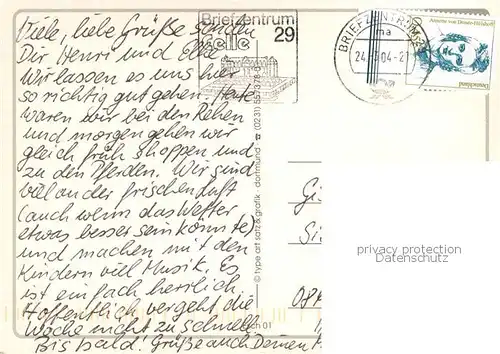 Viele, liebe Grüße senden
Dir Henri und
Wir lassen es uns hier
so richtig gut gehen. Heute
waren wir bei den Rehen
und morgen gehen wir
gleich früh shoppen und
zu den Pferden. Wir sind
viel an der frischen Luft
(auch wenn das Wetter
etwas besser sein könnte)
und machen mit den
Kindern viel Musik. Es
ist einfach herrlich
Hoffentlich vergeht die
Woche nicht zu schnell!
Bis bald! Grüße auch Deinen
Briefzentrum
29
elle
BRIEFZENTRUM
24. 04-2
Annette von Droste-Hülshoff
Deutschland
© type art satz & grafik · dortmund · ☎ (0231) 557378-0
privacy protection
Datenschutz